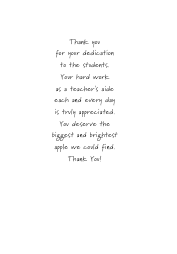 Thank you
for your dedication
to the students.
Your hard work
as a teacher's aide
each and every day
is truly appreciated.
You deserve the
biggest and brightest
apple we could find.
Thank You!